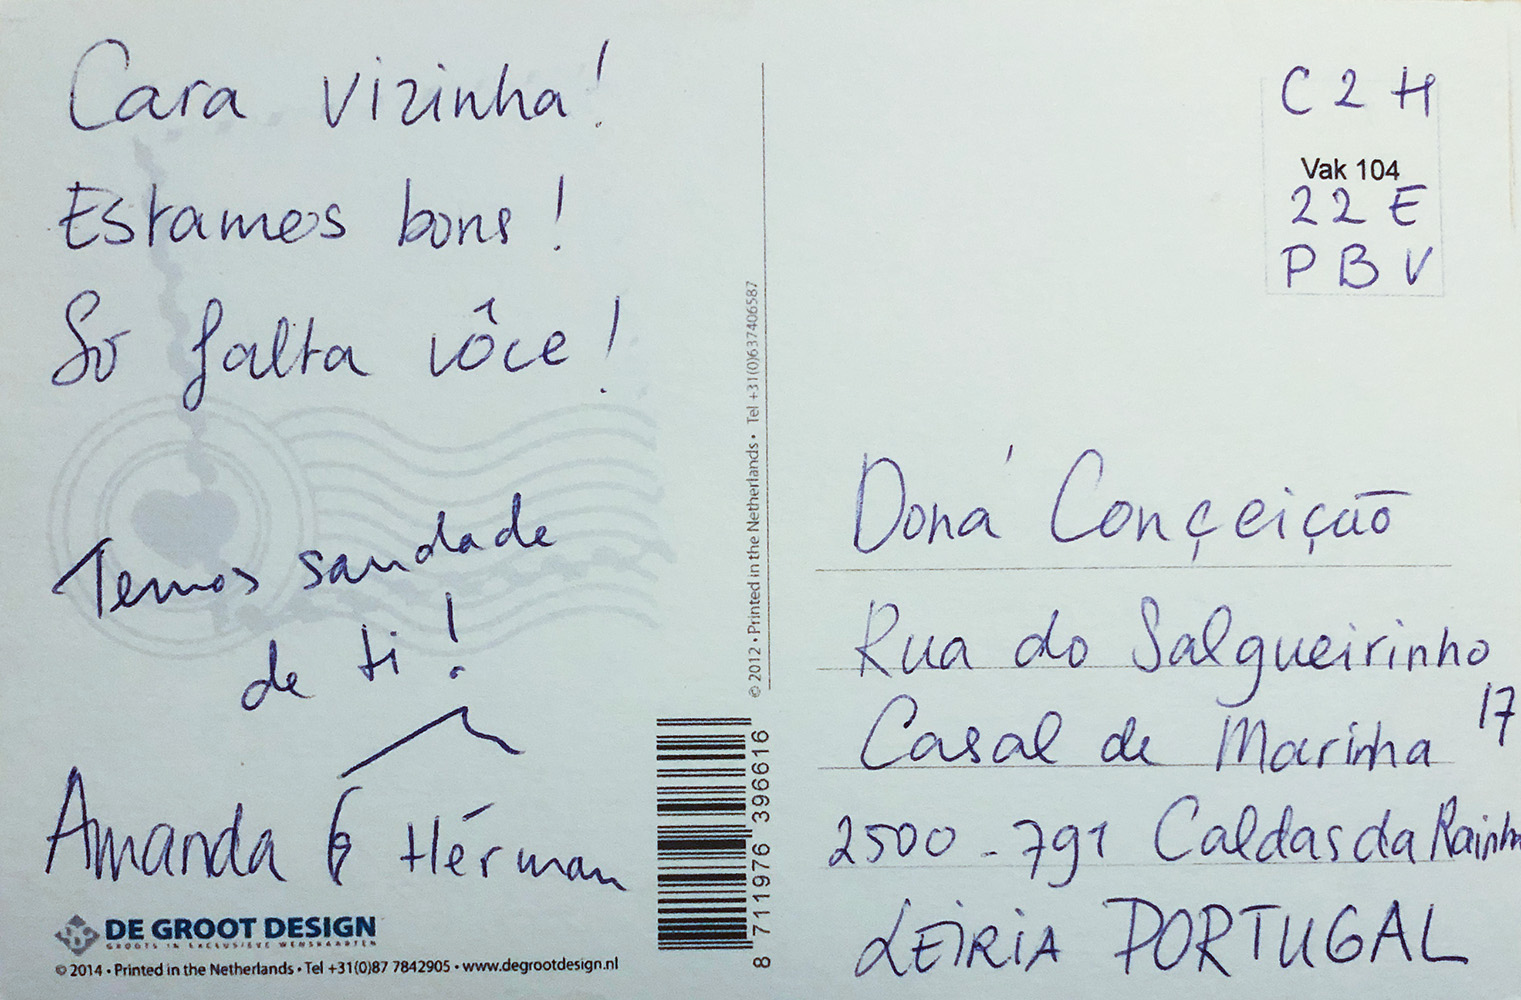 Cara vizinha!
Estamos bons!
Só falta vôce!
Temos saudade
de ti!
Amanda & Hérman
DE GROOT DESIGN
GROOTS IN EXCLUSIEVE WENSKAARTEN
© 2014 • Printed in the Netherlands • Tel +31(0)87 7842905 • www.degrootdesign.nl
© 2012 • Printed in the Netherlands • Tel +31(0)637406587
8 711976 396616
C 2 H
Vak 104
2 2 E
P B V
Doná Conçeição
Rua do Salgueirinho
17
Casal de Marinha
2500-791 Caldas da Rainha
LEIRIA PORTUGAL